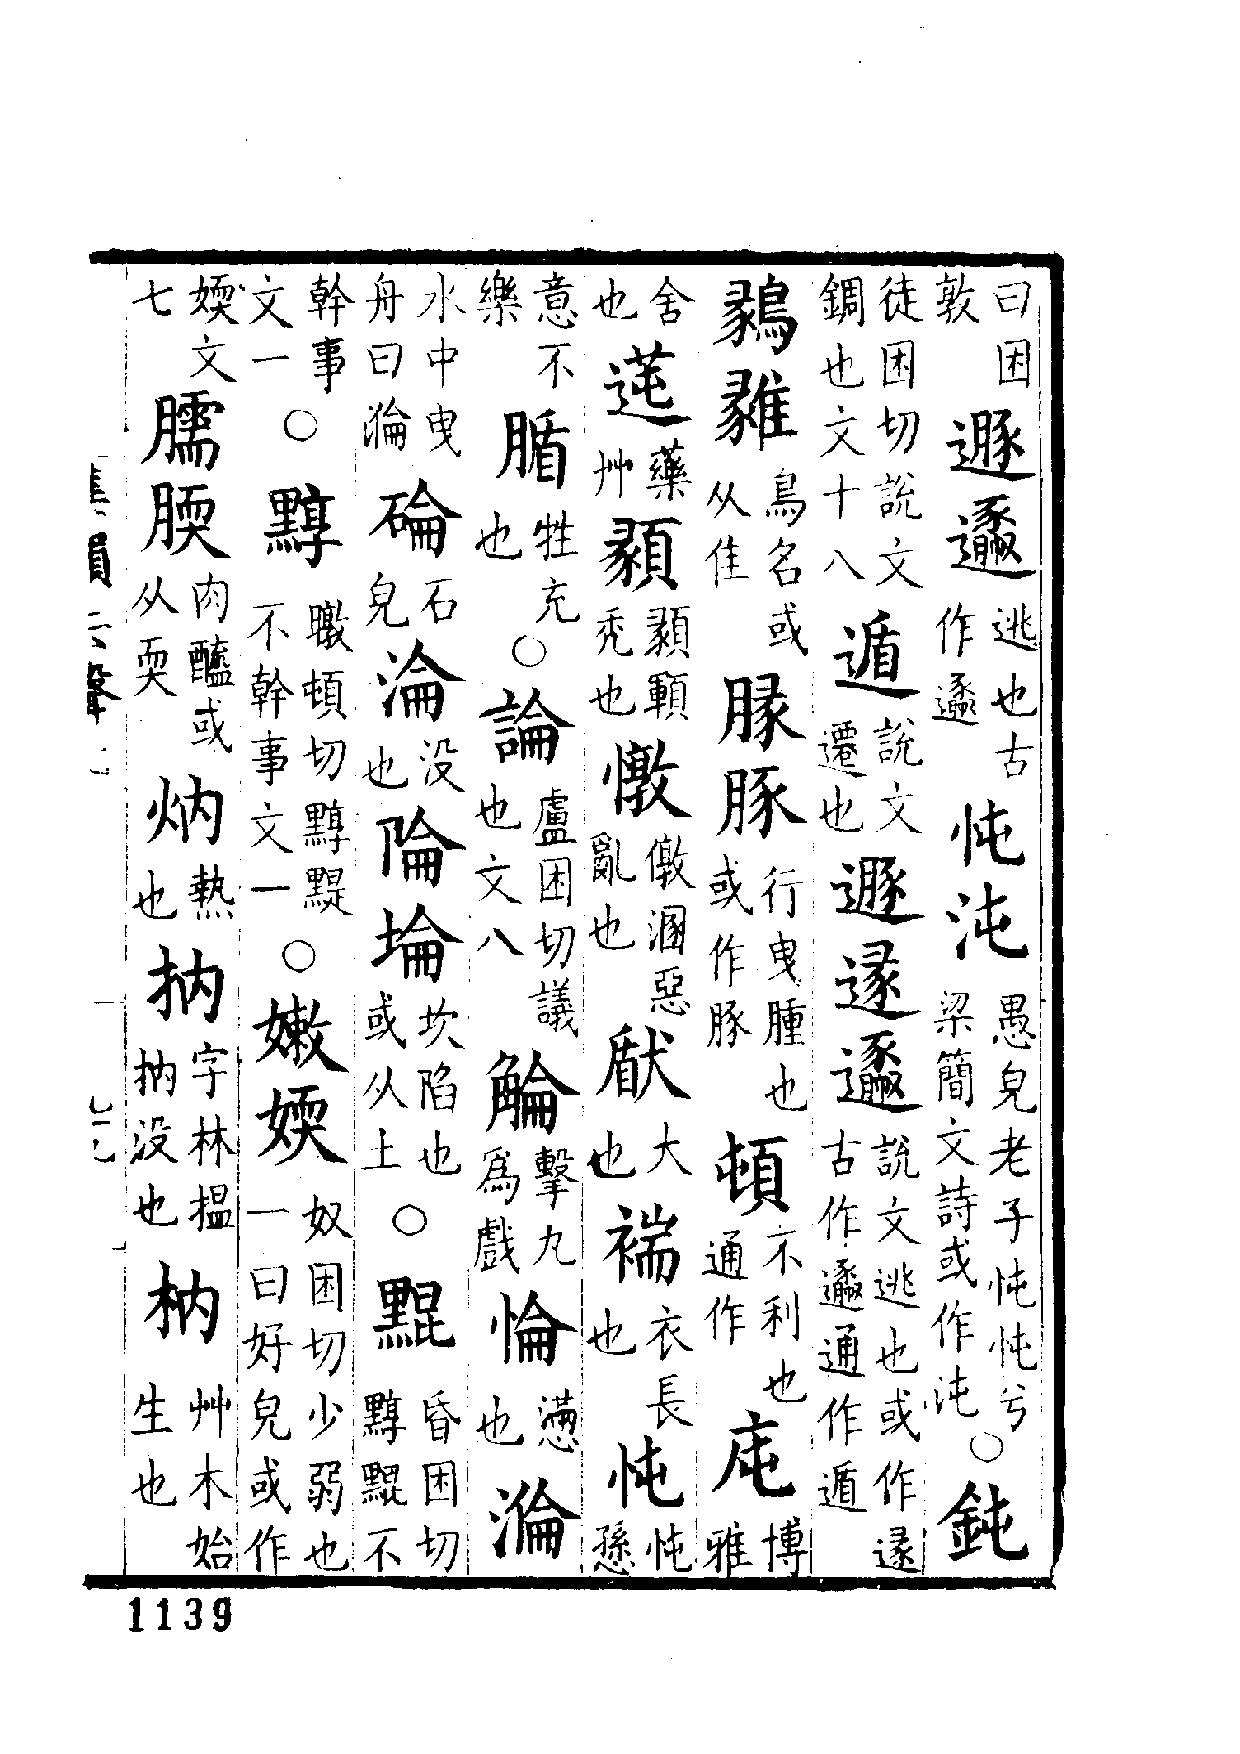 曰困敦遯遯逃也古作遯忳沌愚皃老子忳忳兮梁簡文詩或作沌○鈍
徒困切說文錭也文十八遁說文遷也遯遂遯說文逃也或作遂古作遯通作遁
鶨鶨鳥名或从隹腞豚行曳腫也或作豚頓不利也通作庉博雅
舍也蓰藥艸顡顡顆禿也憞憞溷惡亂也猒大也褍衣長也忳忳愻
意不樂腯牲充也○論盧困切議也文八觮擊丸爲戲惀懣也瀹
水中曳舟曰瀹碖石皃淪没也陯埨坎陷也或从土○䵪昏困切黗䵪不
幹事文一○黗暾頓切黗䵪不幹事文一○嫩媆奴困切少弱也一曰好皃或作
媆文七臑腝肉醢或从耎炳熱也抐字林揾抐没也枘艸木始生也
集韻去聲上
1139